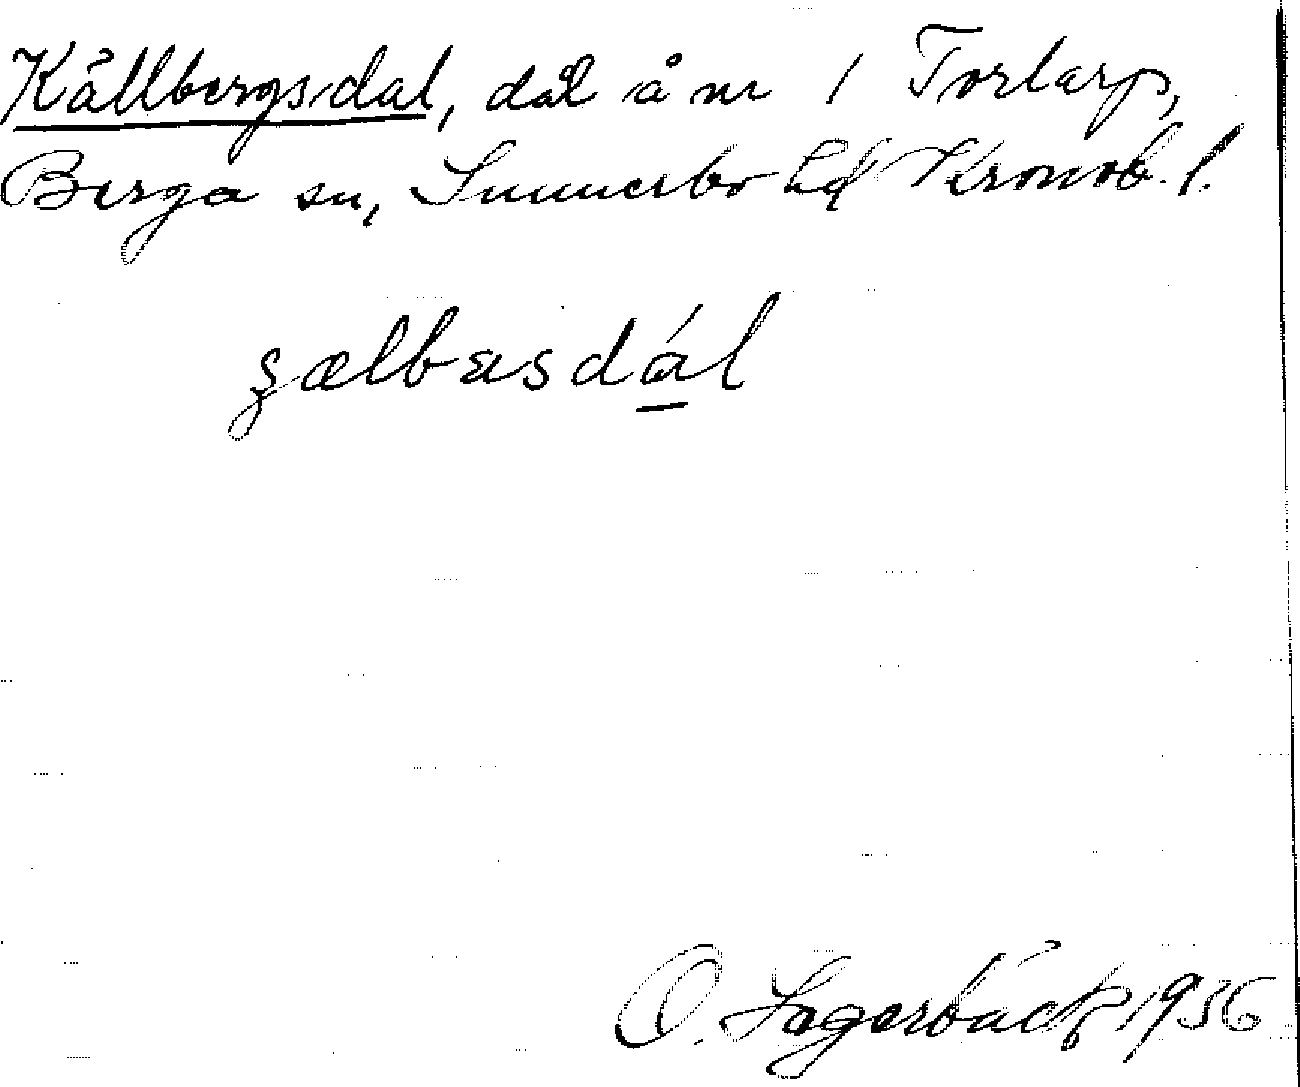 Källbergsdal, dal å nr 1 Torlarp,
Berga sn, Sunnerbo hd Kronob. l.
O. Lagerbäck 1936